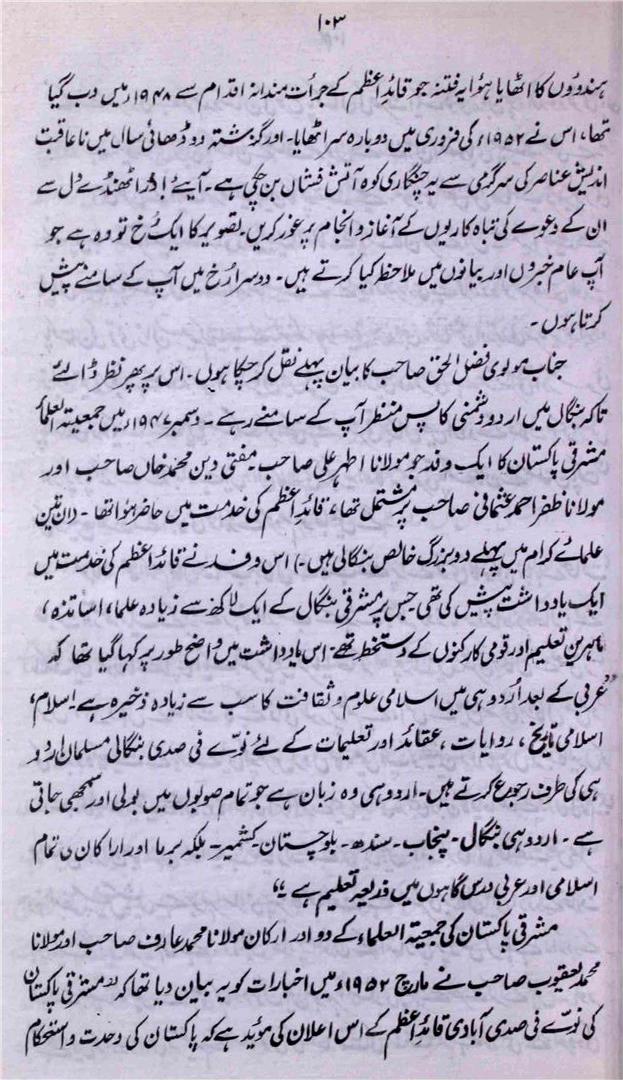 ۱۰۳
ہندوؤں کا اٹھایا ہوا یہ فتنہ جو قائد اعظم کے جرأت مندانہ اقدام سے ۱۹۴۸ء میں دب گیا
تھا، اس نے ۱۹۵۲ء کی فروری میں دوبارہ سر اٹھایا۔ اور گزشتہ دو ڈھائی سال میں ناعاقبت
اندیش عناصر کی سرگرمی سے یہ چنگاری کوہ آتش فشاں بن چکی ہے۔ آیئے! ذرا ٹھنڈے دل سے
ان کے دعوے کی تباہ کاریوں کے آغاز و انجام پر غور کریں۔ تصویر کا ایک رُخ تو وہ ہے جو
آپ عام خبروں اور بیانوں میں ملاحظہ کیا کرتے ہیں۔ دوسرا رُخ میں آپ کے سامنے پیش
کرتا ہوں۔
جناب مولوی فضل الحق صاحب کا بیان پہلے نقل کر چکا ہوں۔ اس پر پھر نظر ڈالئے
تاکہ بنگال میں اردو دشمنی کا پس منظر آپ کے سامنے رہے۔ دسمبر ۱۹۴۷ء میں جمعیتہ العلمأ
مشرقی پاکستان کا ایک وفد جو مولانا اطہر علی صاحب۔ مفتی دین محمد خاں صاحب اور
مولانا ظفر احمد عثمانی صاحب پر مشتمل تھا، قائد اعظم کی خدمت میں حاضر ہوا تھا۔ (ان تین
علمائے کرام میں پہلے دو بزرگ خالص بنگالی ہیں۔) اس وفد نے قائد اعظم کی خدمت میں
ایک یادداشت پیش کی تھی جس پر مشرقی بنگال کے ایک لاکھ سے زیادہ علماء، اساتذہ،
ماہرین تعلیم اور قومی کارکنوں کے دستخط تھے۔ اس یادداشت میں واضح طور پر کہا گیا تھا کہ
”عربی کے بعد اُردو ہی میں اسلامی علوم و ثقافت کا سب سے زیادہ ذخیرہ ہے۔ اسلام،
اسلامی تاریخ، روایات، عقائد اور تعلیمات کے لئے نوّے فی صدی بنگالی مسلمان اردو
ہی کی طرف رجوع کرتے ہیں۔ اردو ہی وہ زبان ہے جو تمام صوبوں میں بولی اور سمجھی جاتی
ہے۔ اردو ہی بنگال۔ پنجاب۔ سندھ۔ بلوچستان۔ کشمیر۔ بلکہ برما اور اراکان کی تمام
اسلامی اور عربی درس گاہوں میں ذریعہ تعلیم ہے۔“
مشرقی پاکستان کی جمعیتہ العلماء کے دو اور ارکان مولانا محمد عارف صاحب اور مولانا
محمد یعقوب صاحب نے مارچ ۱۹۵۲ء میں اخبارات کو یہ بیان دیا تھا کہ ”مشرقی پاکستان
کی نوّے فی صدی آبادی قائد اعظم کے اس اعلان کی مؤید ہے کہ پاکستان کی وحدت و استحکام